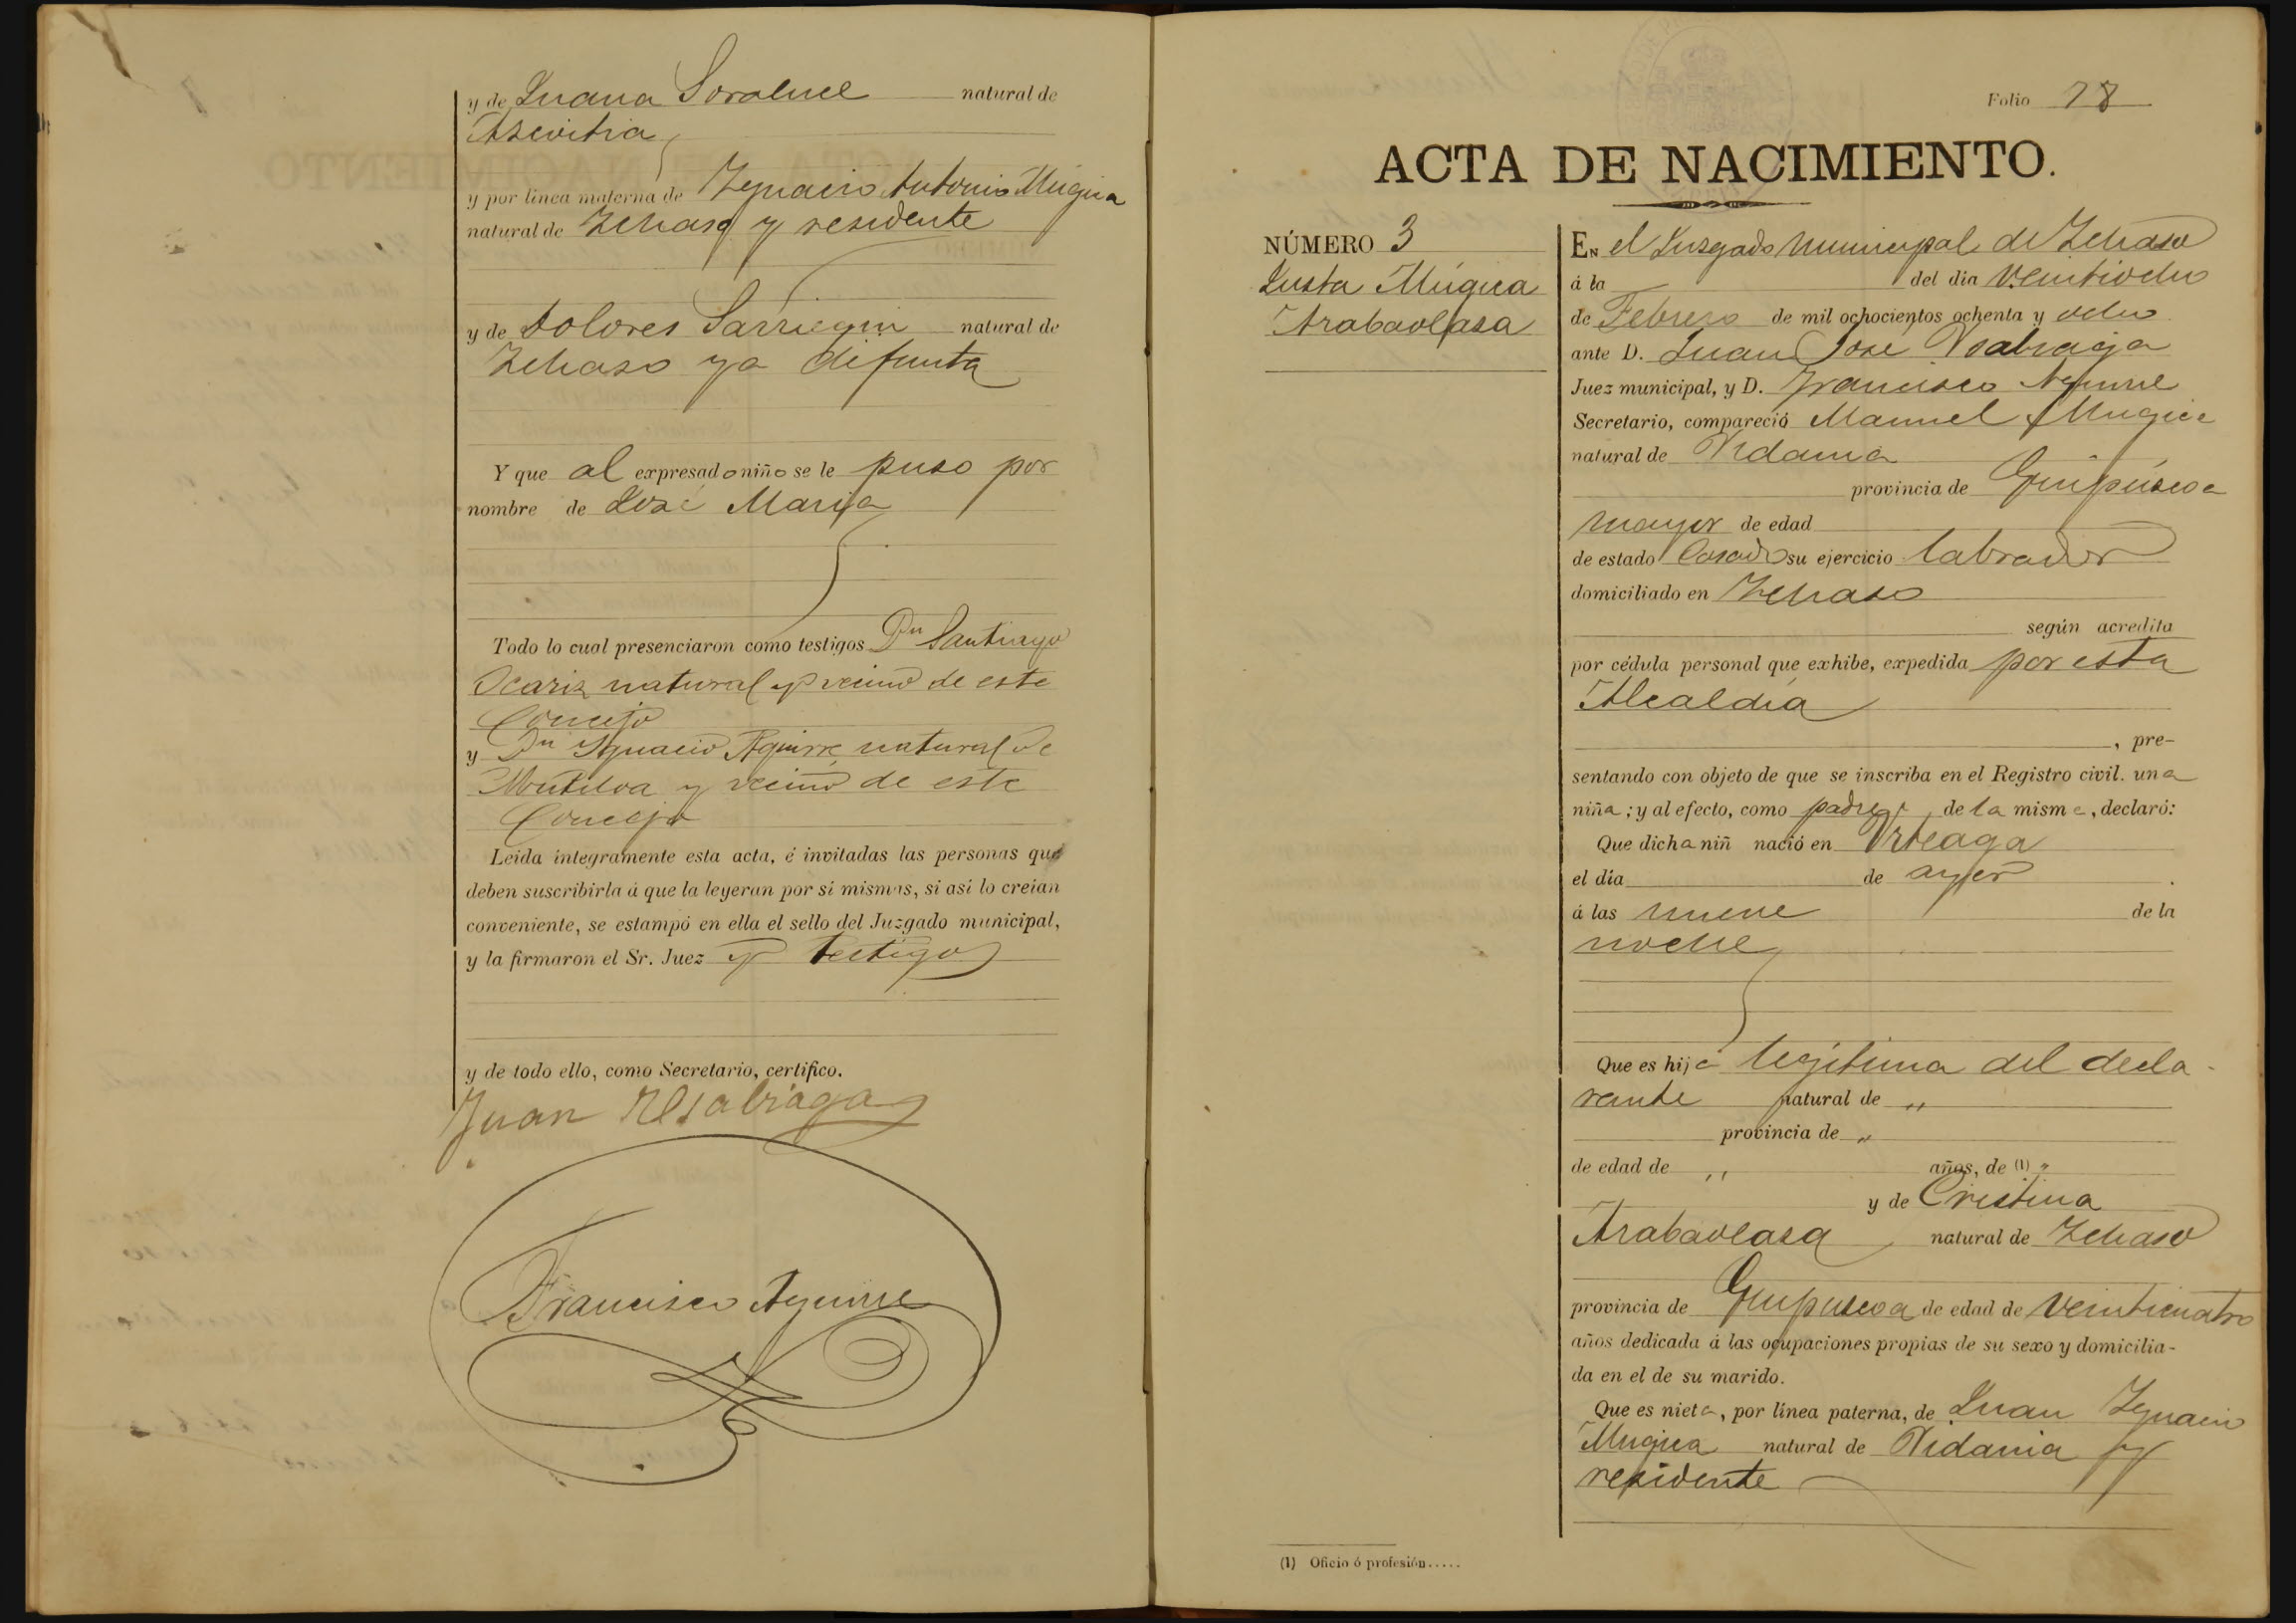 y de Juana Soraluce natural de
Azcoitia
y por línea materna de Ygnacio Antonio Mugica
natural de Ychaso y residente
y de Dolores Sarriegui natural de
Ychaso ya difunta
Y que al expresado niño se le puso por
nombre de José Maria
Todo lo cual presenciaron como testigos Dn Santiago
Ocariz natural y vecino de este
Concejo
y Dn Ygnacio Aguirre natural de
Mutiloa y vecino de este
Concejo
Leida íntegramente esta acta, é invitadas las personas que
deben suscribirla á que la leyeran por sí mismas, si así lo creian
conveniente, se estampó en ella el sello del Juzgado municipal,
y la firmaron el Sr. Juez y testigos
y de todo ello, como Secretario, certifico.
Juan
Francisco Aguirre
Folio 18
ACTA DE NACIMIENTO.
NÚMERO 3
Justa Múgica
Arabaolaza
EN el Juzgado Municipal de Ychaso
á la del dia veintiocho
de Febrero de mil ochocientos ochenta y ocho
ante D. Juan Jose
Juez municipal, y D. Francisco Aguirre
Secretario, compareció Manuel Mugica
natural de Vidania
provincia de Guipúscoa
mayor de edad
de estado Casado su ejercicio labrador
domiciliado en Ychaso
según acredita
por cédula personal que exhibe, expedida por esta
Alcaldía
, pre-
sentando con objeto de que se inscriba en el Registro civil. una
niña; y al efecto, como padre de la misma, declaró:
Que dicha niñ nació en Urteaga
el día de ayer
á las nueve de la
noche
Que es hija legitima del decla-
rante natural de "
provincia de "
de edad de " años, de (1) "
y de Cristina
Arabaolaza natural de Ychaso
provincia de Guipuscoa de edad de veinticuatro
años dedicada á las ocupaciones propias de su sexo y domicilia-
da en el de su marido.
Que es nieta, por línea paterna, de Juan Ygnacio
Mugica natural de Vidania y
residente
(1) Oficio ó profesión.....